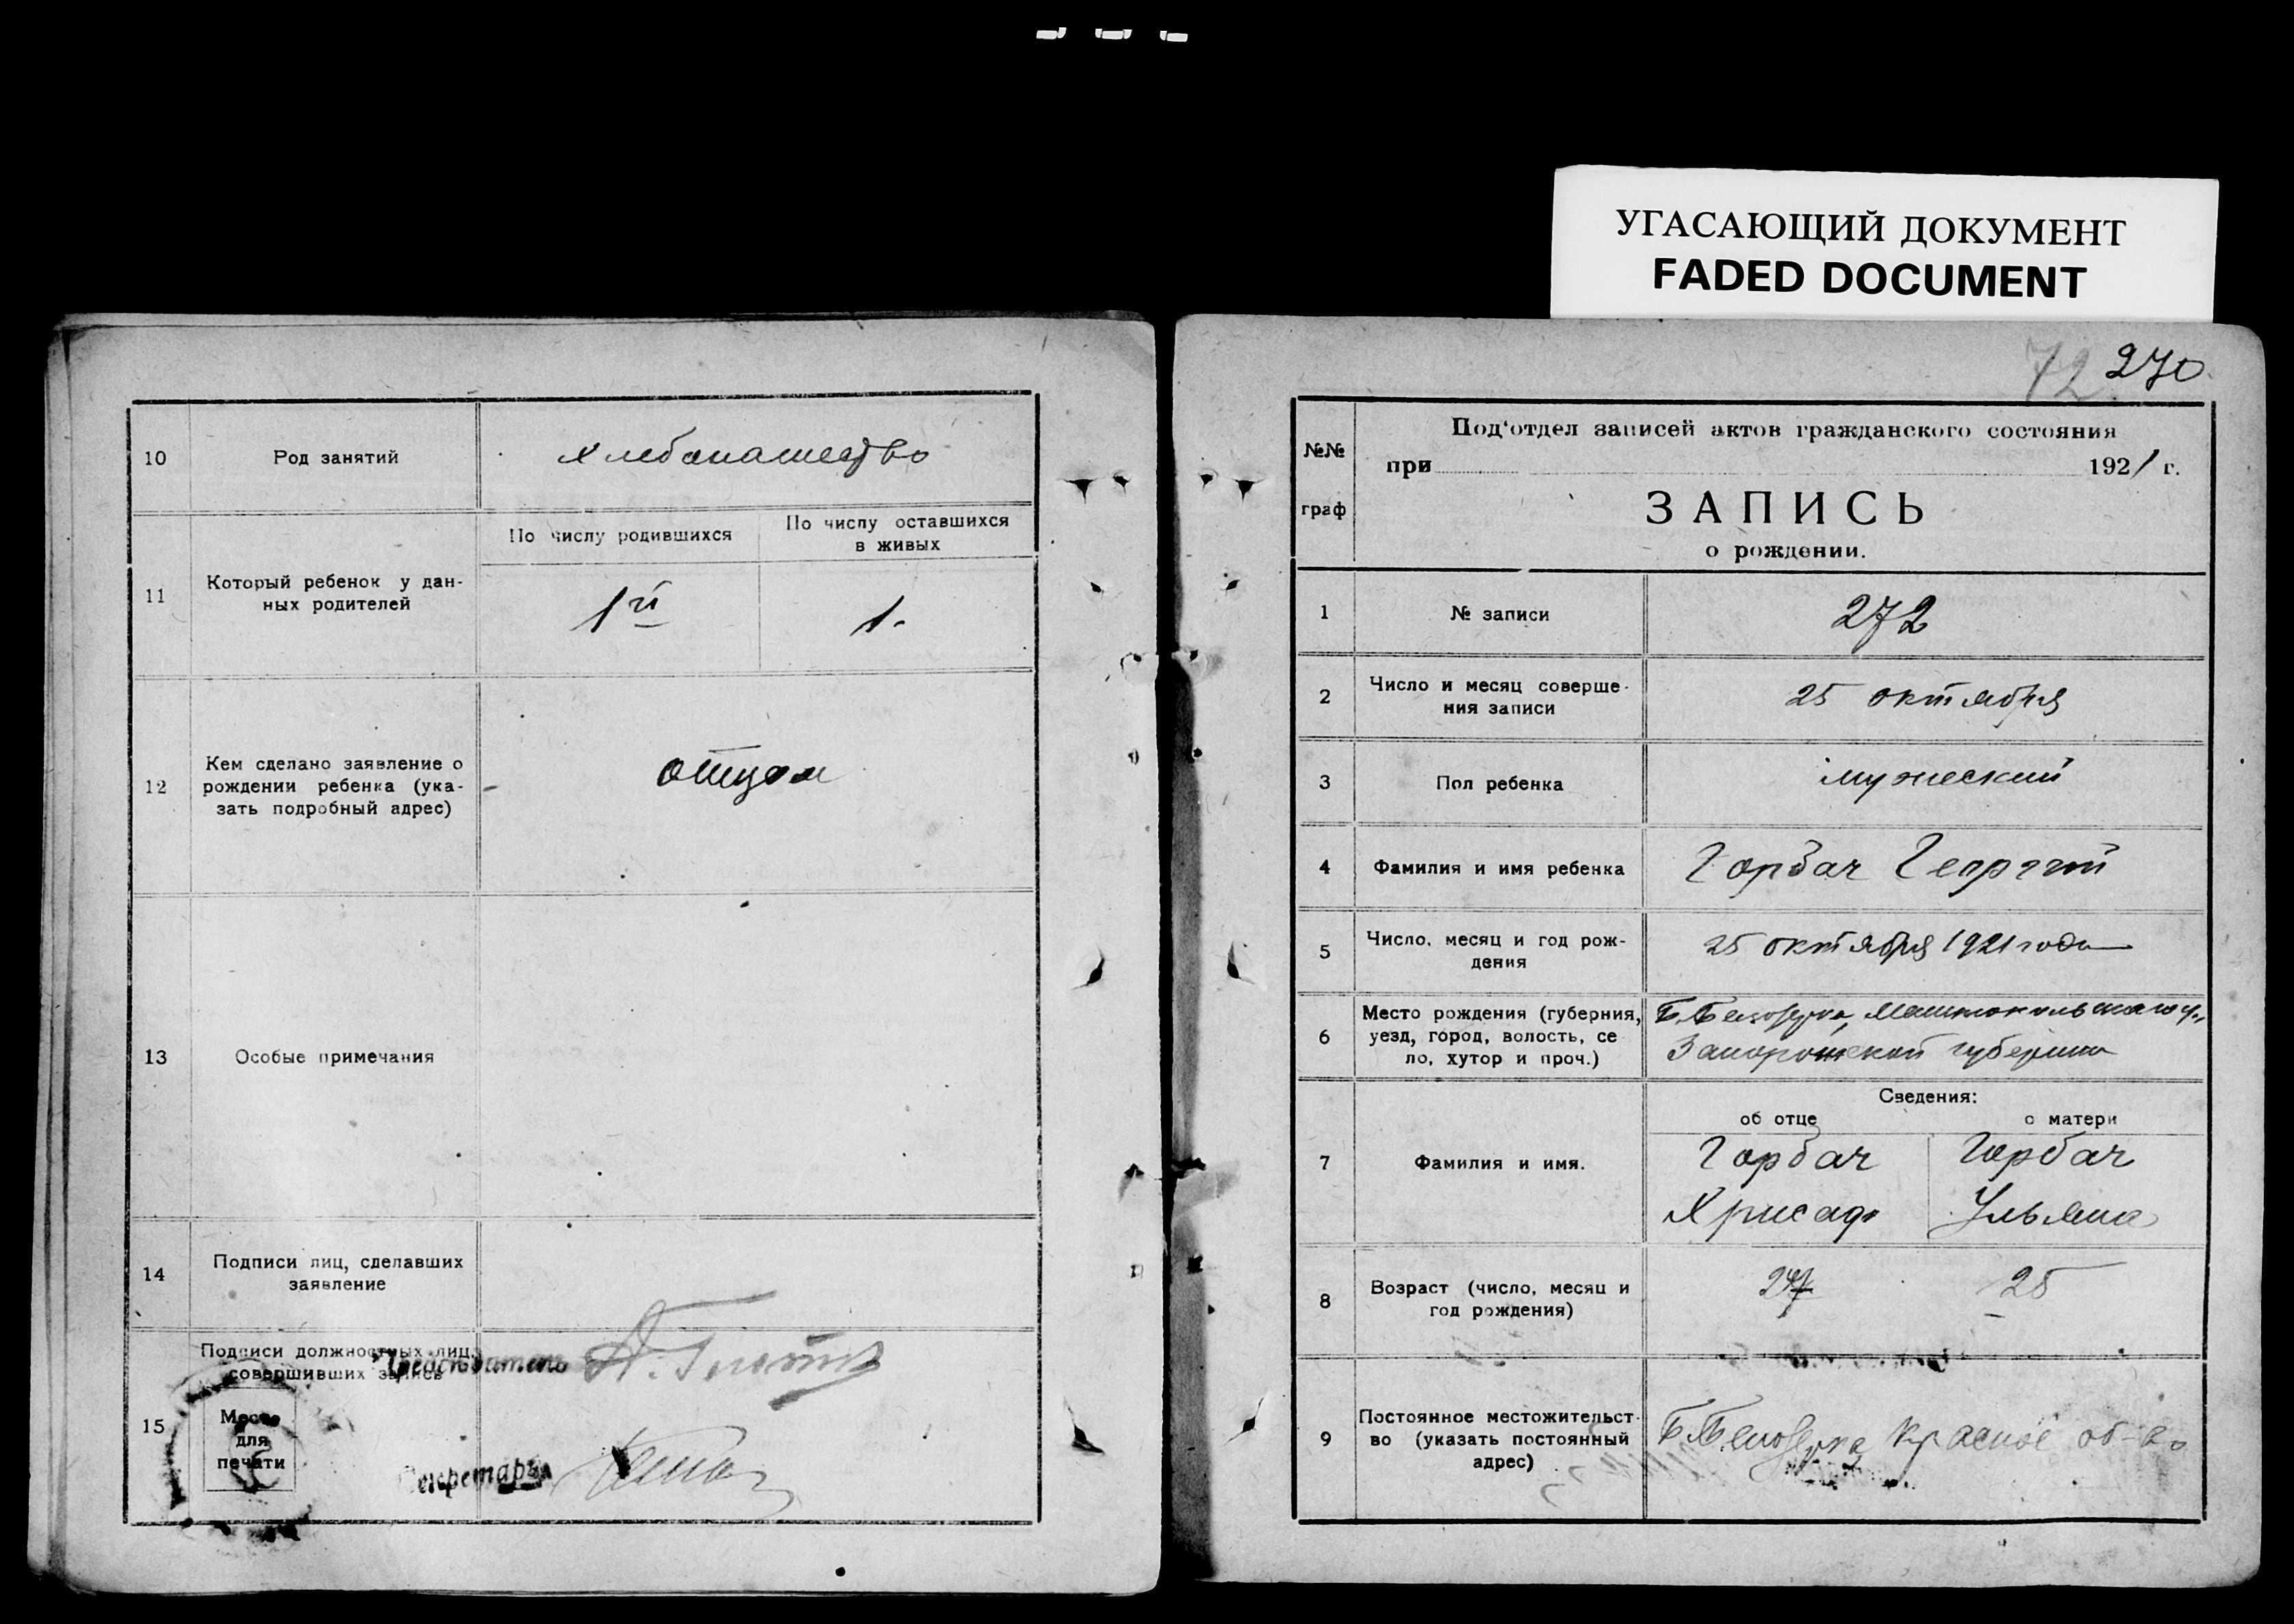 УГАСАЮЩИЙ ДОКУМЕНТ
FADED DOCUMENT
10
Род занятий
Хлебопашество
11
Который ребенок у дан-
ных родителей
По числу родившихся
По числу оставшихся
в живых
1й
1.
12
Кем сделано заявление о
рождении ребенка (ука-
зать подробный адрес)
отцом
13
Особые примечания
14
Подписи лиц, сделавших
заявление
15
Подписи должностных лиц,
совершивших запись
Председатель
Место
для
печати
Секретарь
72
270
№№
граф
Под‘отдел записей актов гражданского состояния
при 1921 г.
ЗАПИСЬ
о рождении.
1
№ записи
272
2
Число и месяц соверше-
ния записи
25 октября
3
Пол ребенка
мужеский
4
Фамилия и имя ребенка
Горбач Георгий
5
Число, месяц и год рож-
дения
25 октября 1921 года
6
Место рождения (губерния,
уезд, город, волость, се
ло, хутор и проч.)
Б. Белозерка, Мелитопольского у.,
Запорожской губернии
Сведения:
об отце
о матери
7
Фамилия и имя.
Горбач
Хрисаф
Горбач
Ульяна
8
Возраст (число, месяц и
год рождения)
25
9
Постоянное местожительст-
во (указать постоянный
адрес)
Б. Белозерка Красное об-во